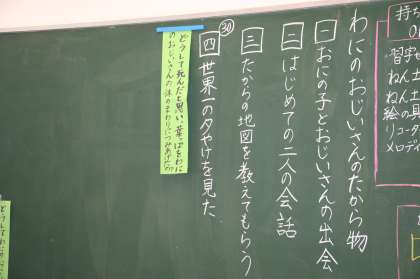 持ち
わにのおじいさんのたから物
一 おにの子とおじいさんの出会
二 はじめての二人の会話
三 たからの地図を教えてもらう
㉚
四 世界一の夕やけを見た
どうして死んだと思い、葉っぱをわに
のおじいさんの体のまわりにつみあげた
習字
ねん土
ねん土
絵の具
リコー
メロディ